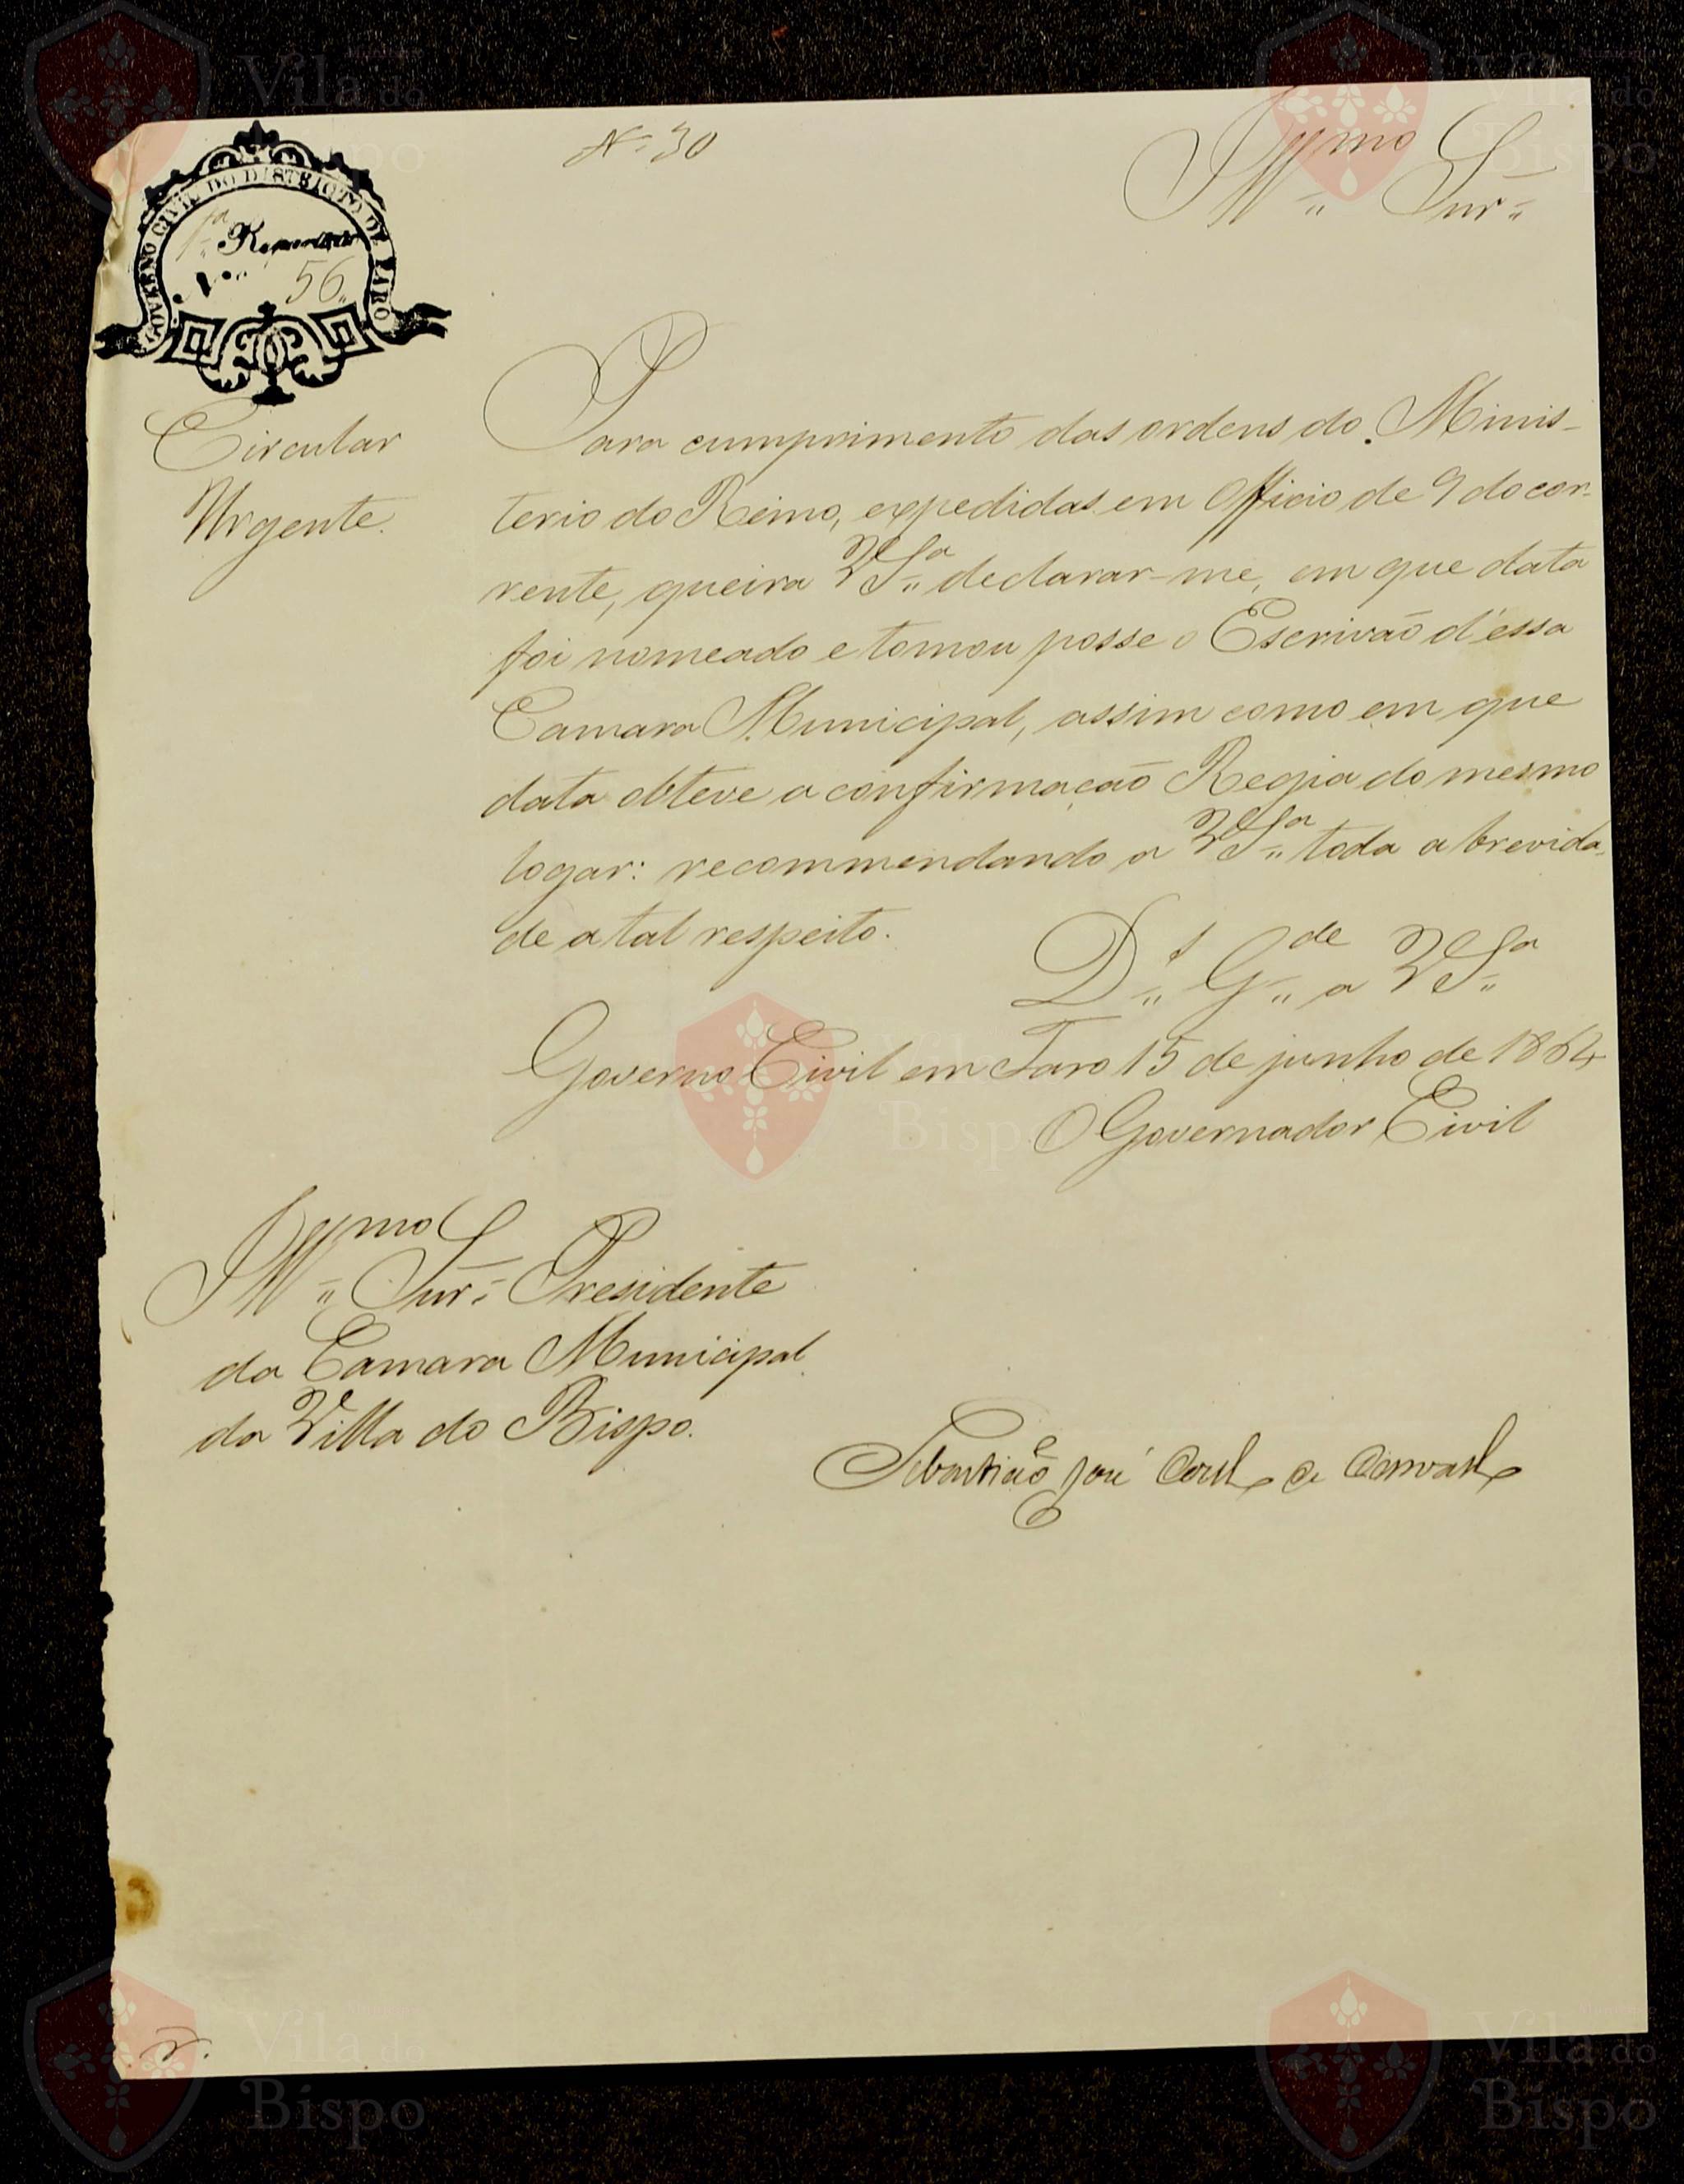 Nº 30
Illmo Snr.
GOVERNO CIVIL DO DISTRICTO DE FARO
1ª Repartição
Nº 56
Circular
Urgente.
Para cumprimento das ordens do Minis-
terio do Reino, expedidas em Officio de 9 do cor-
rente, queira VSª declarar-me, em que data
foi nomeado e tomou posse o Escrivão d'essa
Camara Municipal, assim como em que
data obteve a confirmação Regia do mesmo
logar: recommendando a VSª toda a brevida-
de a tal respeito.
Ds Gde a VSª
Governo Civil em Faro 15 de junho de 1864
O Governador Civil
Illmo Snr. Presidente
da Camara Municipal
da Villa do Bispo.
Sebastião José Coelho de Carvalho
Vila do
Bispo